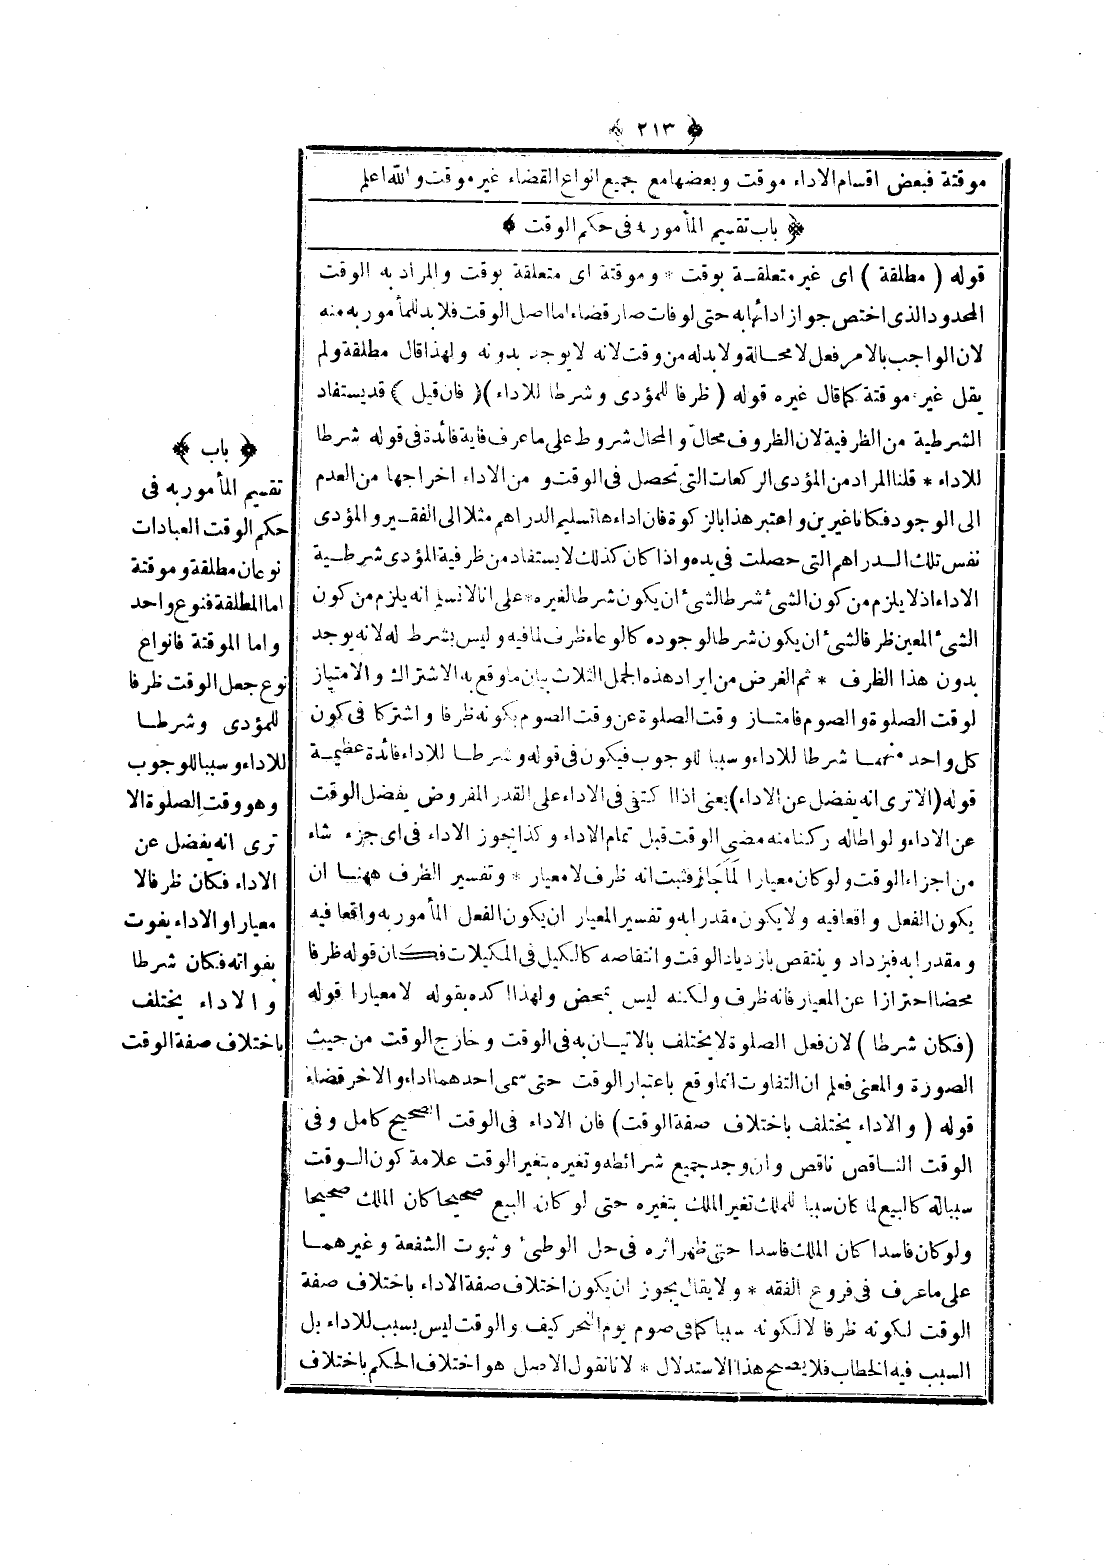 ﴿ ٢١٣ ﴾
موقتة فبعض اقسام الاداء موقت وبعضها مع جميع انواع القضاء غير موقت والله اعلم
﴿ باب تقسيم المأمور به فى حكم الوقت ﴾
قوله ( مطلقة ) اى غير متعلقة بوقت * وموقتة اى متعلقة بوقت والمراد به الوقت
المحدود الذى اختص جواز ادائها به حتى لو فات صار قضاء اما اصل الوقت فلا بد للمأمور به منه
لان الواجب بالامر فعل لا محالة ولا بد له من وقت لانه لا يوجد بدونه ولهذا قال مطلقة ولم
يقل غير موقتة كما قال غيره قوله ( ظرفا للمؤدى وشرطا للاداء ) ( فان قيل ) قد يستفاد
الشرطية من الظرفية لان الظروف محال والمحال شروط على ما عرف فاية فائدة فى قوله شرطا
للاداء * قلنا المراد من المؤدى الركعات التى تحصل فى الوقت ومن الاداء اخراجها من العدم
الى الوجود فكانا غيرين واعتبر هذا بالزكوة فان اداءها تسليم الدراهم مثلا الى الفقير والمؤدى
نفس تلك الدراهم التى حصلت فى يده واذا كان كذلك لا يستفاد من ظرفية المؤدى شرطية
الاداء اذ لا يلزم من كون الشئ شرطا لشئ ان يكون شرطا لغيره * على انا لا نسلم انه يلزم من كون
الشئ المعين ظرفا لشئ ان يكون شرطا لوجوده كالوعاء ظرف لما فيه وليس بشرط له لانه يوجد
بدون هذا الظرف * ثم الغرض من ايراد هذه الجمل الثلاث بيان ما وقع به الاشتراك والامتياز
لوقت الصلوة والصوم فامتاز وقت الصلوة عن وقت الصوم بكونه ظرفا واشتركا فى كون
كل واحد منهما شرطا للاداء وسببا للوجوب فيكون فى قوله وشرطا للاداء فائدة عظيمة
قوله ( الا ترى انه يفضل عن الاداء ) يعنى اذا اكتفى فى الاداء على القدر المفروض يفضل الوقت
عن الاداء ولو اطاله ركنا منه مضى الوقت قبل تمام الاداء وكذا يجوز الاداء فى اى جزء شاء
من اجزاء الوقت ولو كان معيارا لما جاز فثبت انه ظرف لا معيار * وتفسير الظرف ههنا ان
يكون الفعل واقعا فيه ولا يكون مقدرا به وتفسير المعيار ان يكون الفعل المأمور به واقعا فيه
ومقدرا به فيزداد وينتقص بازدياد الوقت وانتقاصه كالكيل فى المكيلات فكان قوله ظرفا
محضا احترازا عن المعيار فانه ظرف ولكنه ليس بمحض ولهذا اكده بقوله لا معيارا قوله
( فكان شرطا ) لان فعل الصلوة لا يختلف بالاتيان به فى الوقت وخارج الوقت من حيث
الصورة والمعنى فعلم ان التفاوت انما وقع باعتبار الوقت حتى سمى احدهما اداء والاخر قضاء
قوله ( والاداء يختلف باختلاف صفة الوقت ) فان الاداء فى الوقت الصحيح كامل وفى
الوقت الناقص ناقص وان وجد جميع شرائطه وتغيره بتغير الوقت علامة كون الوقت
سببا له كالبيع لما كان سببا للملك تغير الملك بتغيره حتى لو كان البيع صحيحا كان الملك صحيحا
ولو كان فاسدا كان الملك فاسدا حتى ظهر اثره فى حل الوطئ وثبوت الشفعة وغيرهما
على ما عرف فى فروع الفقه * ولا يقال يجوز ان يكون اختلاف صفة الاداء باختلاف صفة
الوقت لكونه ظرفا لا لكونه سببا كما فى صوم يوم النحر كيف والوقت ليس بسبب للاداء بل
السبب فيه الخطاب فلا يصح هذا الاستدلال * لانا نقول الاصل هو اختلاف الحكم باختلاف
﴿ باب ﴾
تقسيم المأمور به فى
حكم الوقت العبادات
نوعان مطلقة وموقتة
اما المطلقة فنوع واحد
واما الموقتة فانواع
نوع جعل الوقت ظرفا
للمؤدى وشرطا
للاداء وسببا للوجوب
وهو وقت الصلوة الا
ترى انه يفضل عن
الاداء فكان ظرفا لا
معيارا والاداء يفوت
بفواته فكان شرطا
والاداء يختلف
باختلاف صفة الوقت